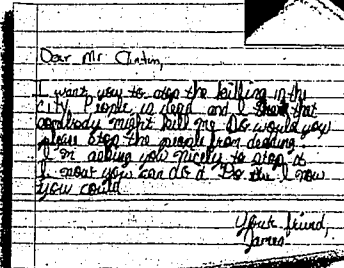 Dear Mr Clinton,
I want you to stop the killing in the
city. People is dead and I think that
somebody might kill me. So would you
please stop the people from deading.
I'm asking you nicely to stop it
I know you can do it. Do the I now
you could
Your friend,
James